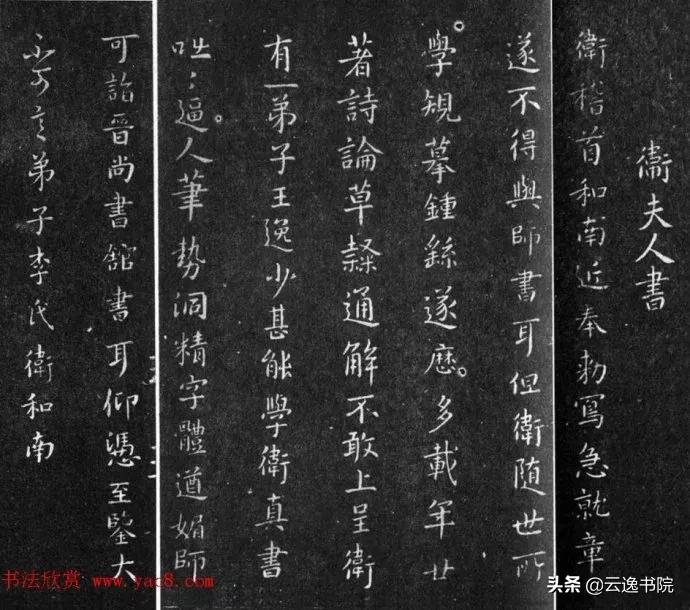 衛夫人書
衛稽首和南近奉勑寫急就章
遂不得與師書耳但衛隨世所
學規摹鍾繇遂歷多載年廿
著詩論草隸通解不敢上呈衛
有一弟子王逸少甚能學衛真書
咄〻逼人筆勢洞精字體遒媚師
可詣晉尚書舘書耳仰憑至鑒大
不可言弟子李氏衛和南
书法欣赏 www.yac8.com
头条 @云逸书院